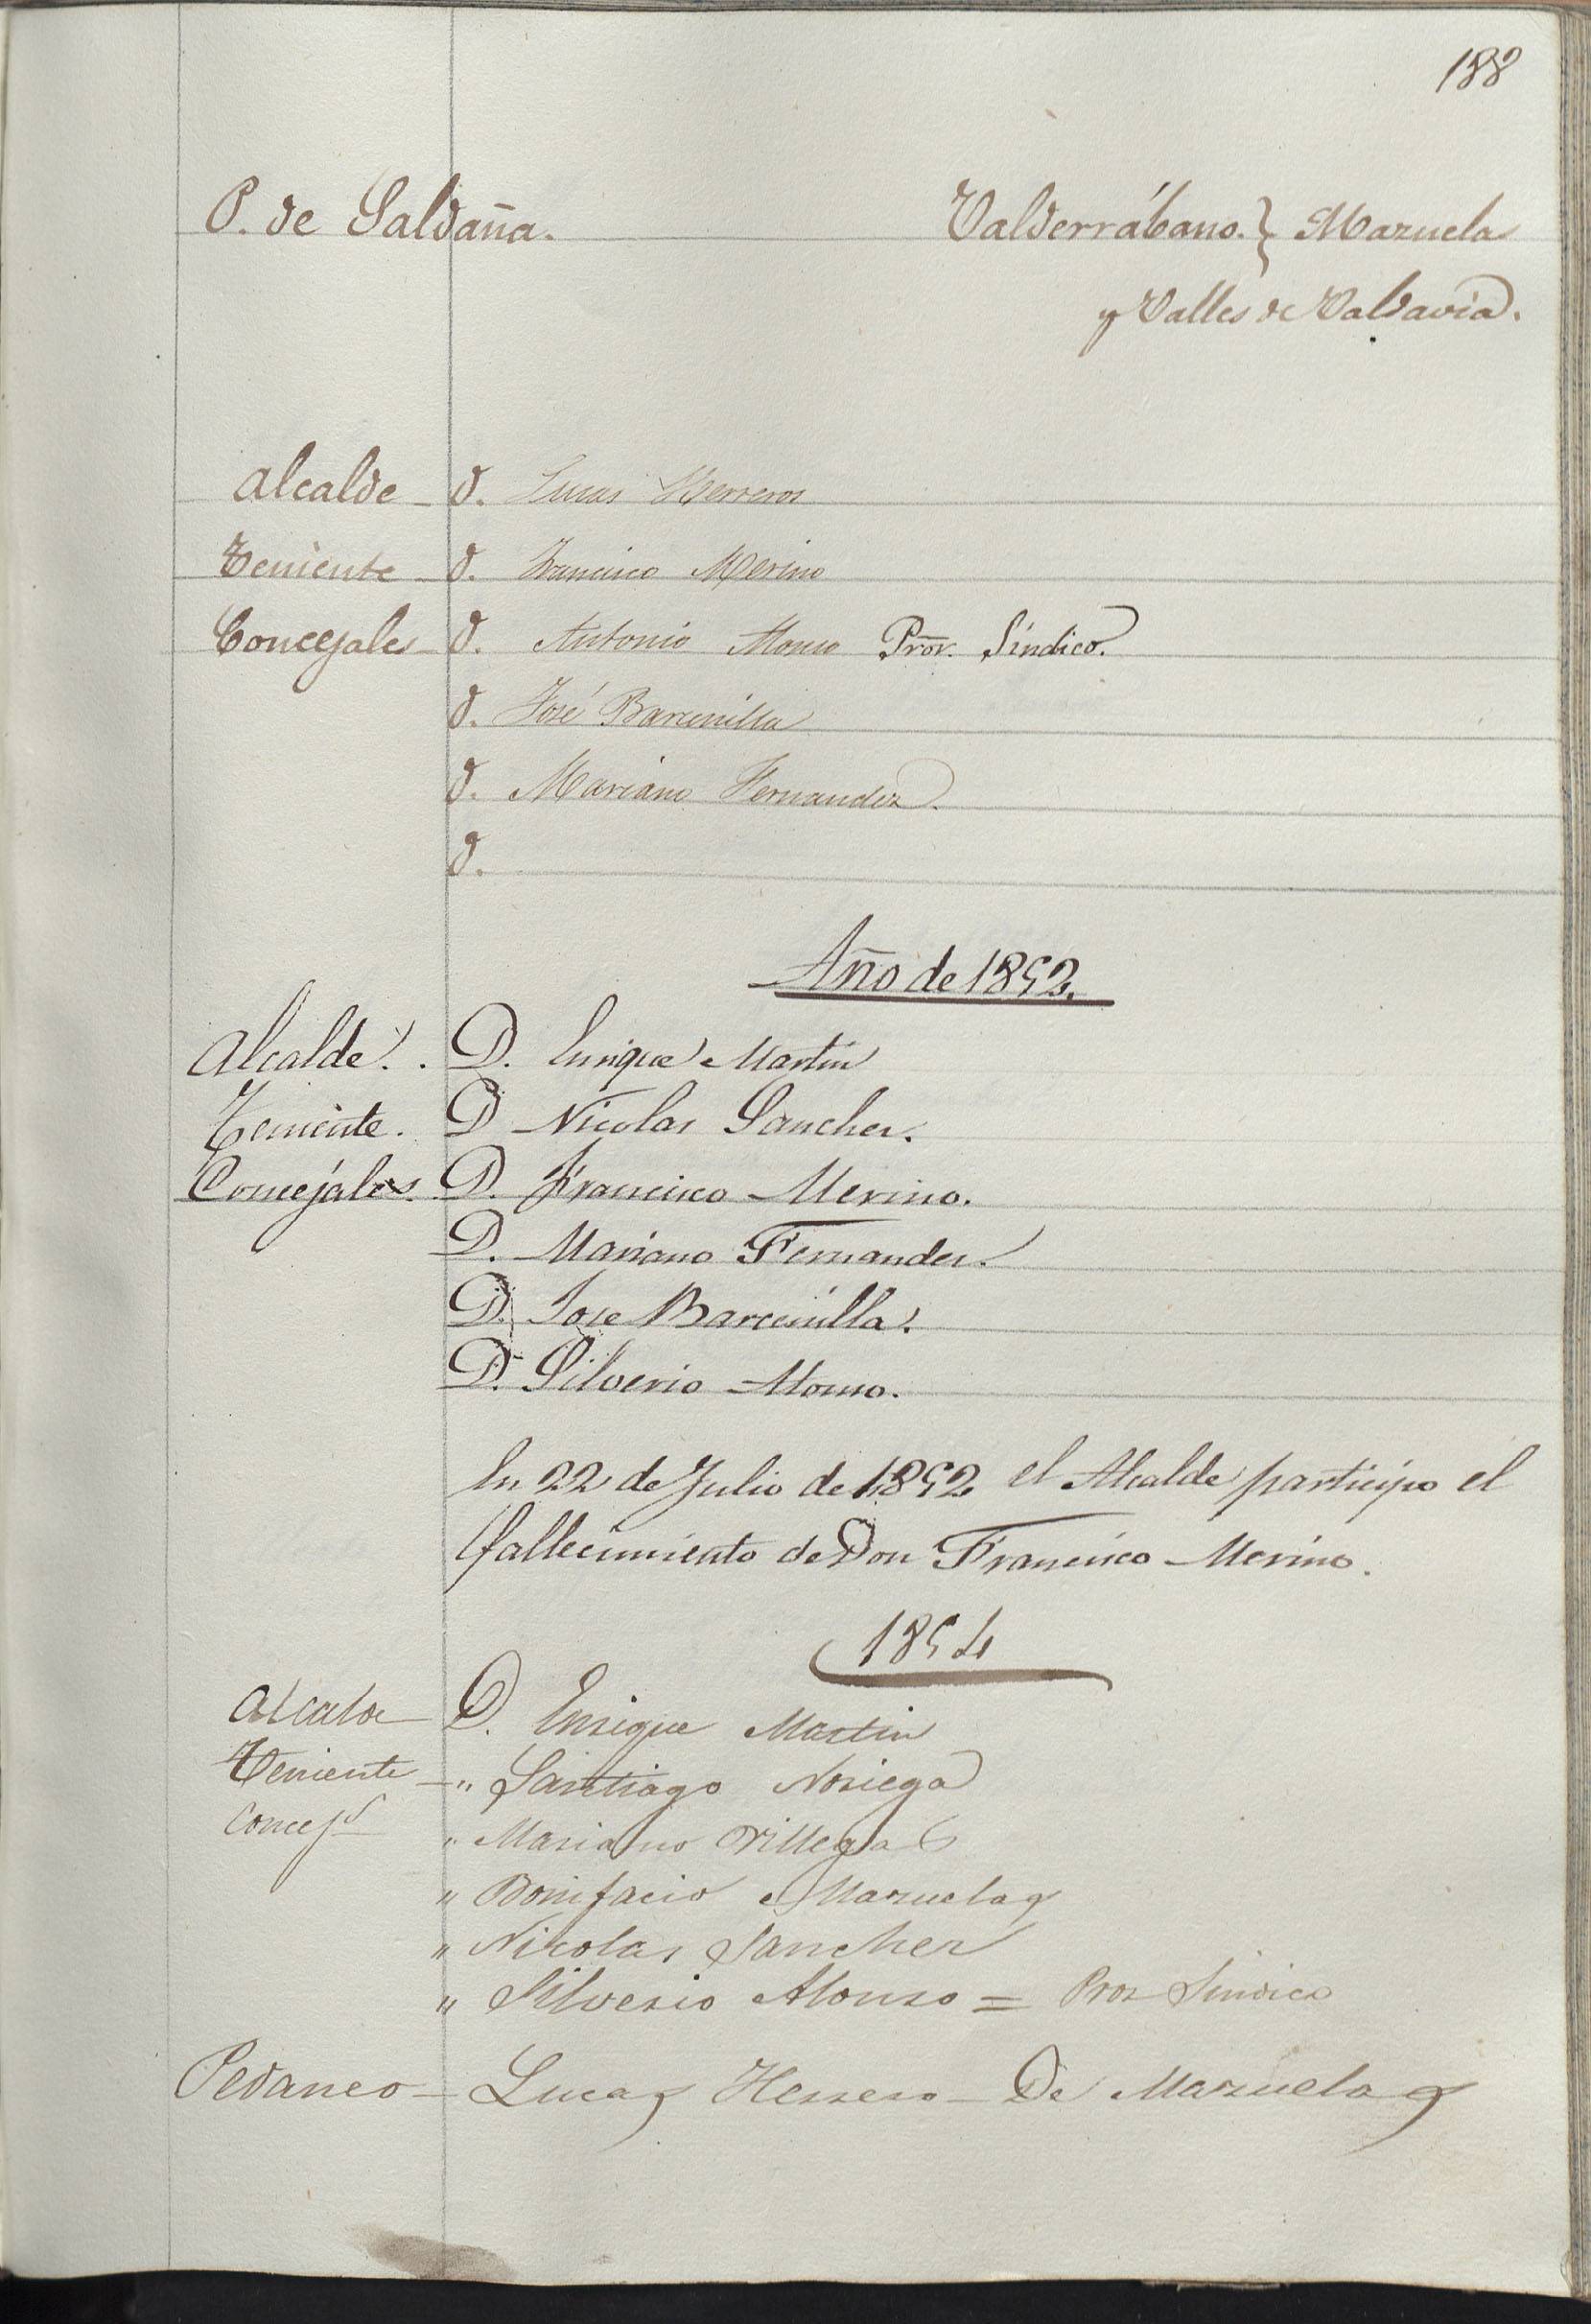 188
P. de Saldaña. Valderrábano. } Mazuela
y Valles de Valdavia.
Alcalde D. Lucas Herreros
Teniente D. Francisco Merino
Concejales D. Antonio Alonso Pror. Síndico.
D. José Barcenilla
D. Mariano Fernandez.
D.
Año de 1852.
Alcalde. . D. Enrique Martin
Teniente. D Nicolas Sanchez.
Concejales. D. Francisco Merino.
D. Mariano Fernandez.
D. Jose Barcenilla.
D. Silverio Alonso.
En 22 de Julio de 1852 el Alcalde participo el
fallecimiento de Don Francisco Merino.
1854
Alcalde D. Enrique Martin
Teniente — " Santiago Noriega
Concejs " Mariano Villegas
" Bonifacio Mazuelas
" Nicolas Sanchez
" Silverio Alonso = Pror Sindico
Pedaneo — Lucas Herrero — De Mazuelas